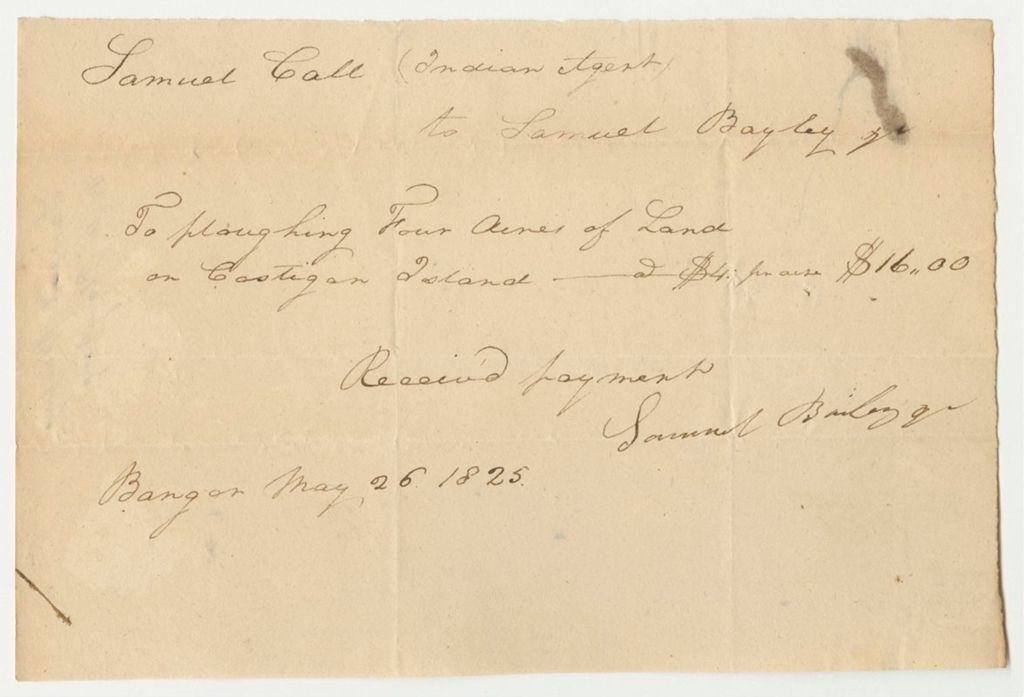 Samuel Call (Indian Agent)
to Samuel Bayley Jr
To ploughing Four Acres of Land
on Costigan Island — @ $4. pr acre $16,,00
Receiv'd payment
Samuel Bailey Jr
Bangor May 26 1825.